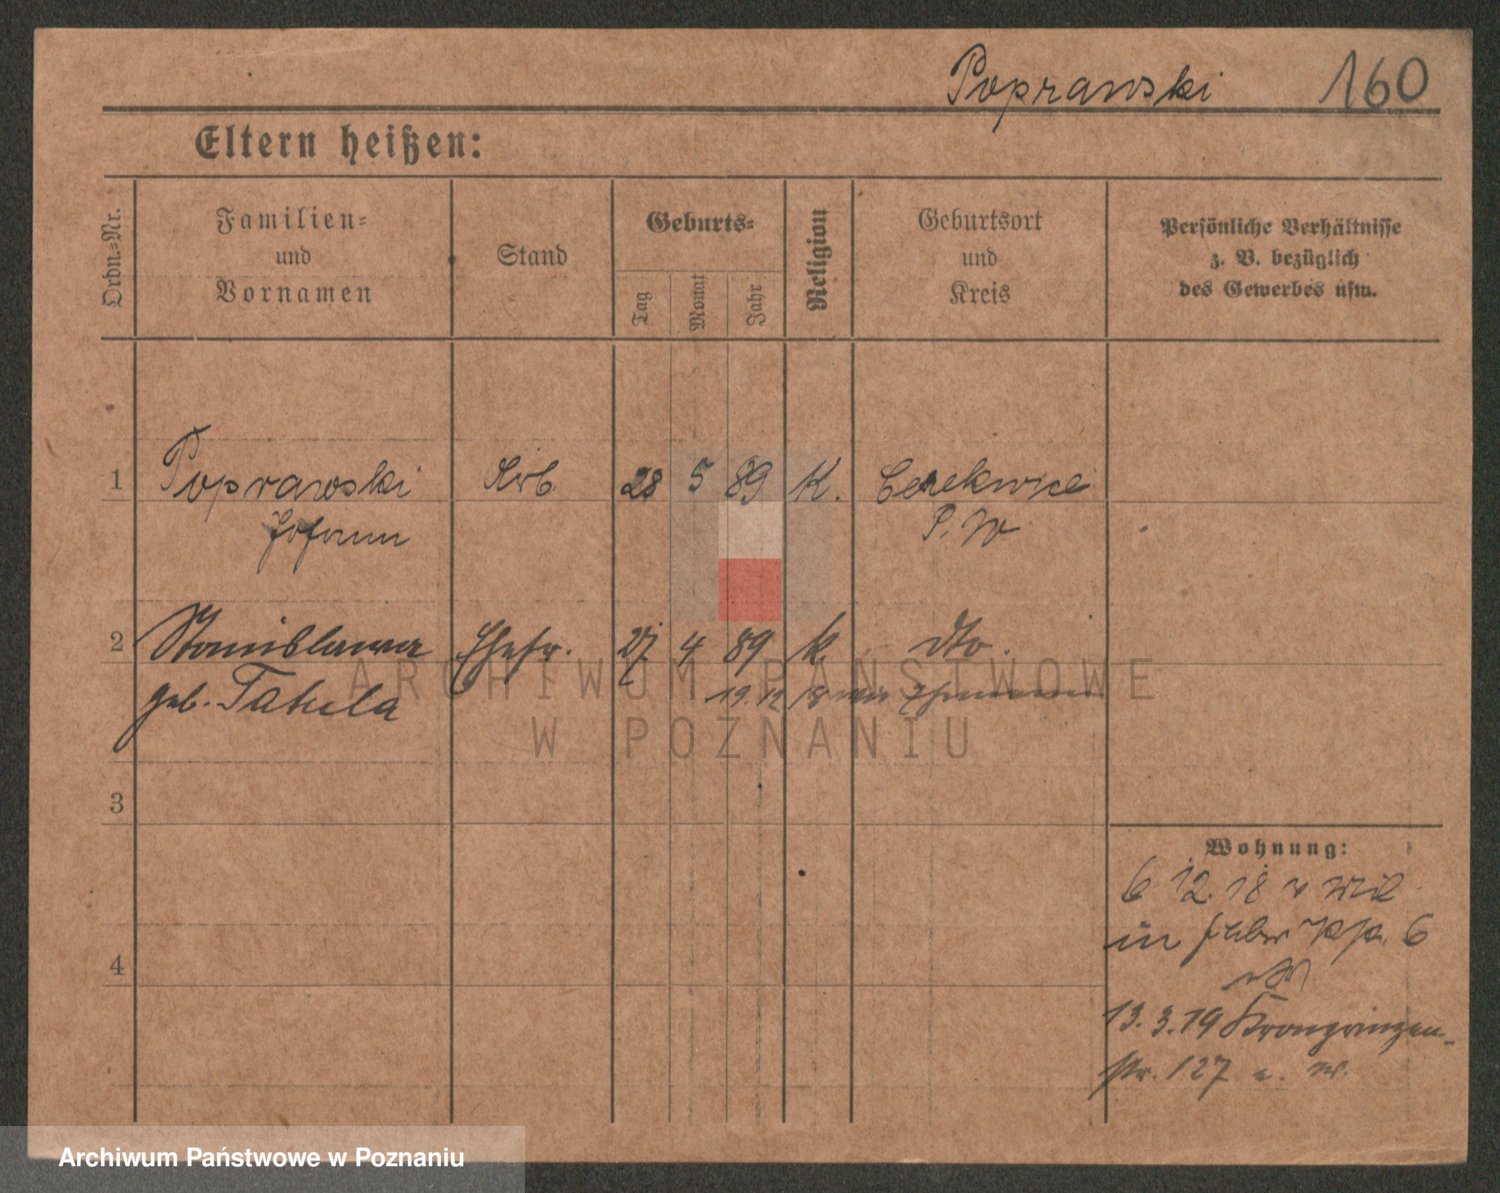 Poprawski 160
Eltern heißen:
Ordn.=Nr.
Familien=
und
Vornamen
Stand
Geburts=
Tag
Monat
Jahr
Religion
Geburtsort
und
Kreis
Persönliche Verhältnisse
z. B. bezüglich
des Gewerbes usw.
1 Poprawski Arb 28 5 89 K. Cerekwice
Johann P. W
2 Stanislawa Ehefr. 27 4 89 k. dto.
geb. Takela 19. 12 18
3
4
Wohnung:
6 12. 18 v
in 6
13. 3. 19 Kronprinzen-
str. 127
ARCHIWUM PAŃSTWOWE
W POZNANIU
Archiwum Państwowe w Poznaniu